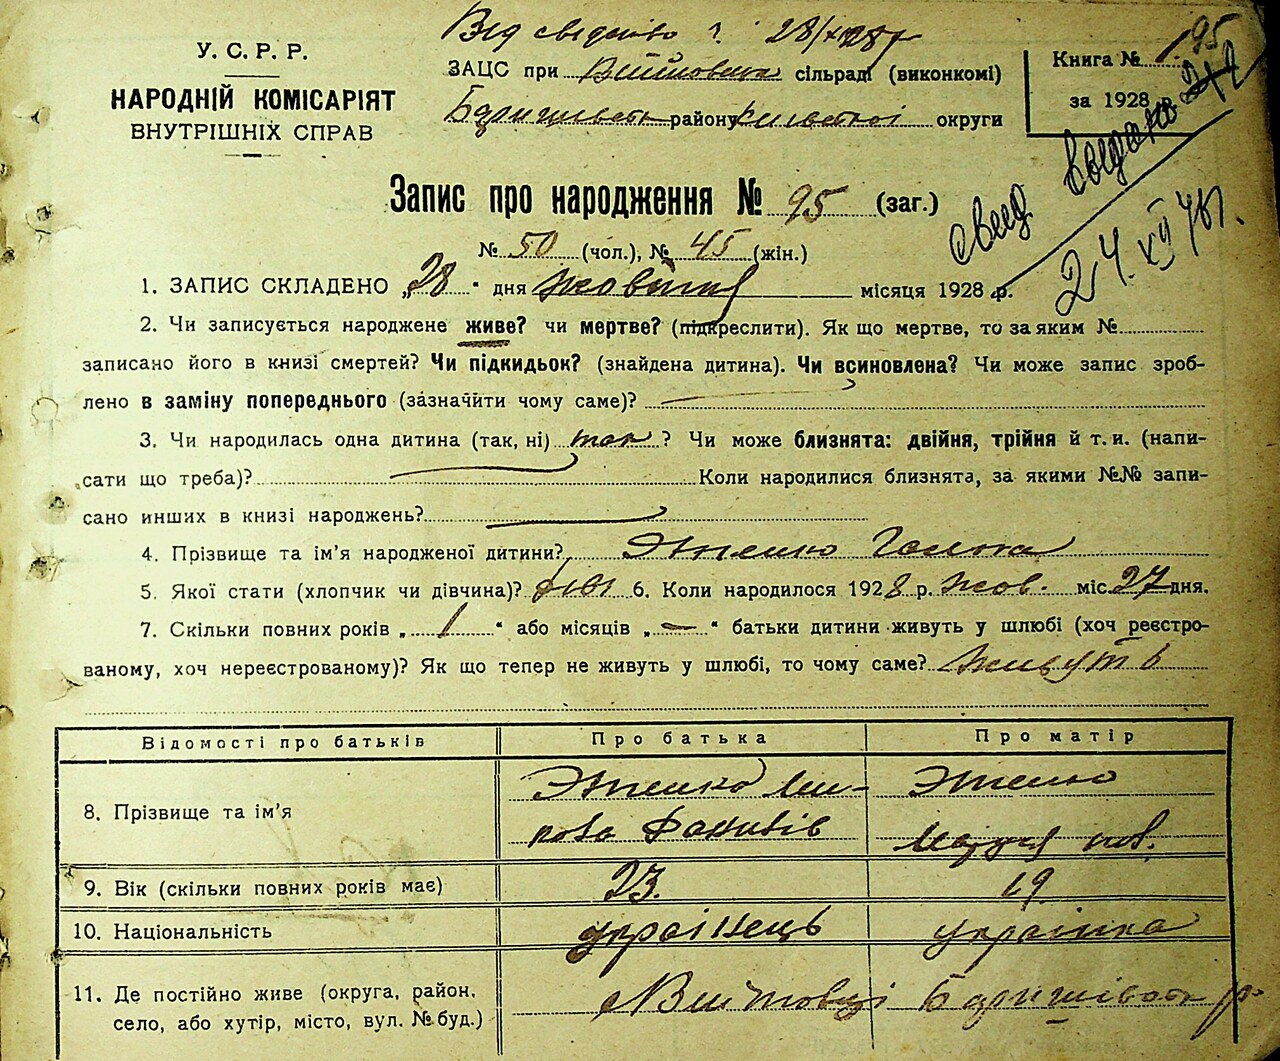 Від свідство г. 28/XI 28 р
У. С. Р. Р.
НАРОДНІЙ КОМІСАРІЯТ
ВНУТРІШНІХ СПРАВ
ЗАЦС при сільраді (виконкомі)
району Київської округи
Книга № 1 95
за 1928
свид. выдано
24.XII 46г.
Запис про народження № 95 (заг.)
№ 50 (чол.), № 45 (жін.)
1. ЗАПИС СКЛАДЕНО „28" дня жовтня місяця 1928 р.
2. Чи записується народжене живе? чи мертве? (підкреслити). Як що мертве, то за яким №
записано його в книзі смертей? Чи підкидьок? (знайдена дитина). Чи всиновлена? Чи може запис зроб-
лено в заміну попереднього (зазначіти чому саме)?
3. Чи народилась одна дитина (так, ні) так ? Чи може близнята: двійня, трійня й т. и. (напи-
сати що треба)? Коли народилися близнята, за якими №№ запи-
сано инших в книзі народжень?
4. Прізвище та ім'я народженої дитини? Галина
5. Якої стати (хлопчик чи дівчина)? 6. Коли народилося 1928 р. жов. міс. 27 дня.
7. Скільки повних років „ 1 " або місяців „ — " батьки дитини живуть у шлюбі (хоч реєстро-
ваному, хоч нереєстрованому)? Як що тепер не живуть у шлюбі, то чому саме? живуть
Відомості про батьків Про батька Про матір
8. Прізвище та ім'я
9. Вік (скільки повних років має) 23. 19.
10. Національність українець українка
11. Де постійно живе (округа, район,
село, або хутір, місто, вул. № буд.) Війтовці Баришівськ р.